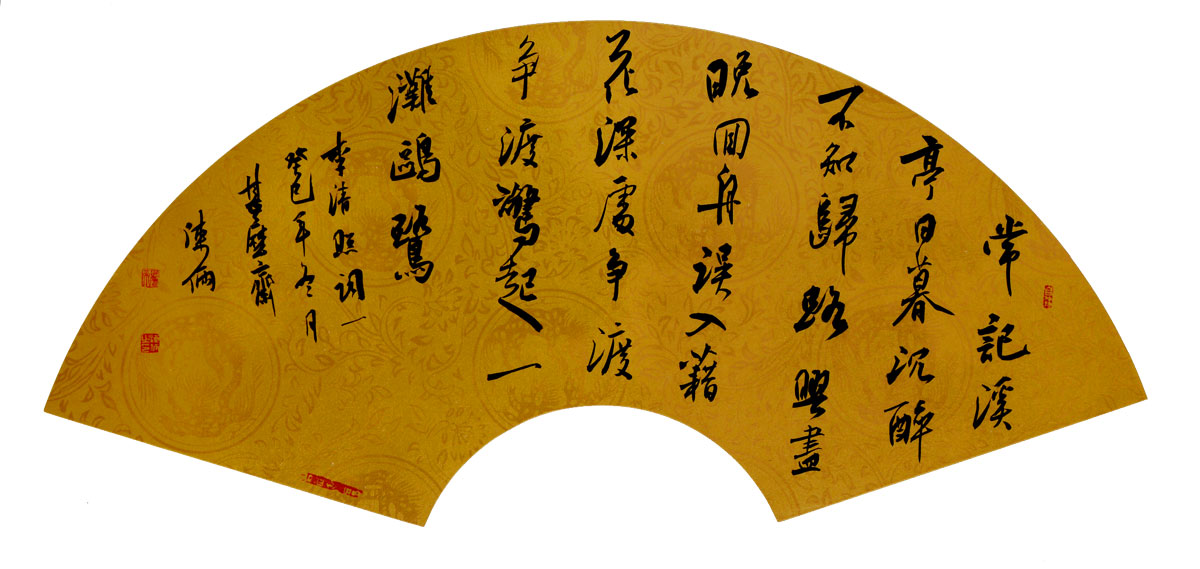 常記溪
亭日暮沉醉
不知歸路興盡
晚回舟誤入藉
花深處争渡
争渡驚起一
灘鷗鷺
李清照詞一
癸巳年冬月
齋